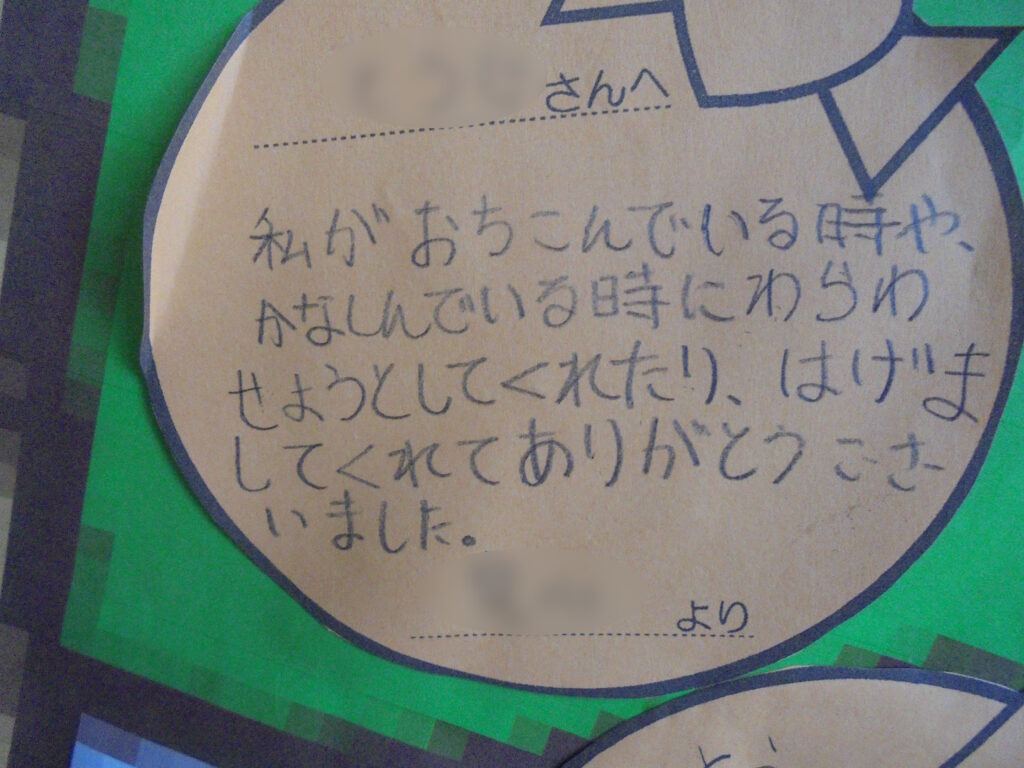 さんへ
私がおちこんでいる時や、
かなしんでいる時にわらわ
せようとしてくれたり、はげま
してくれてありがとうござ
いました。
より